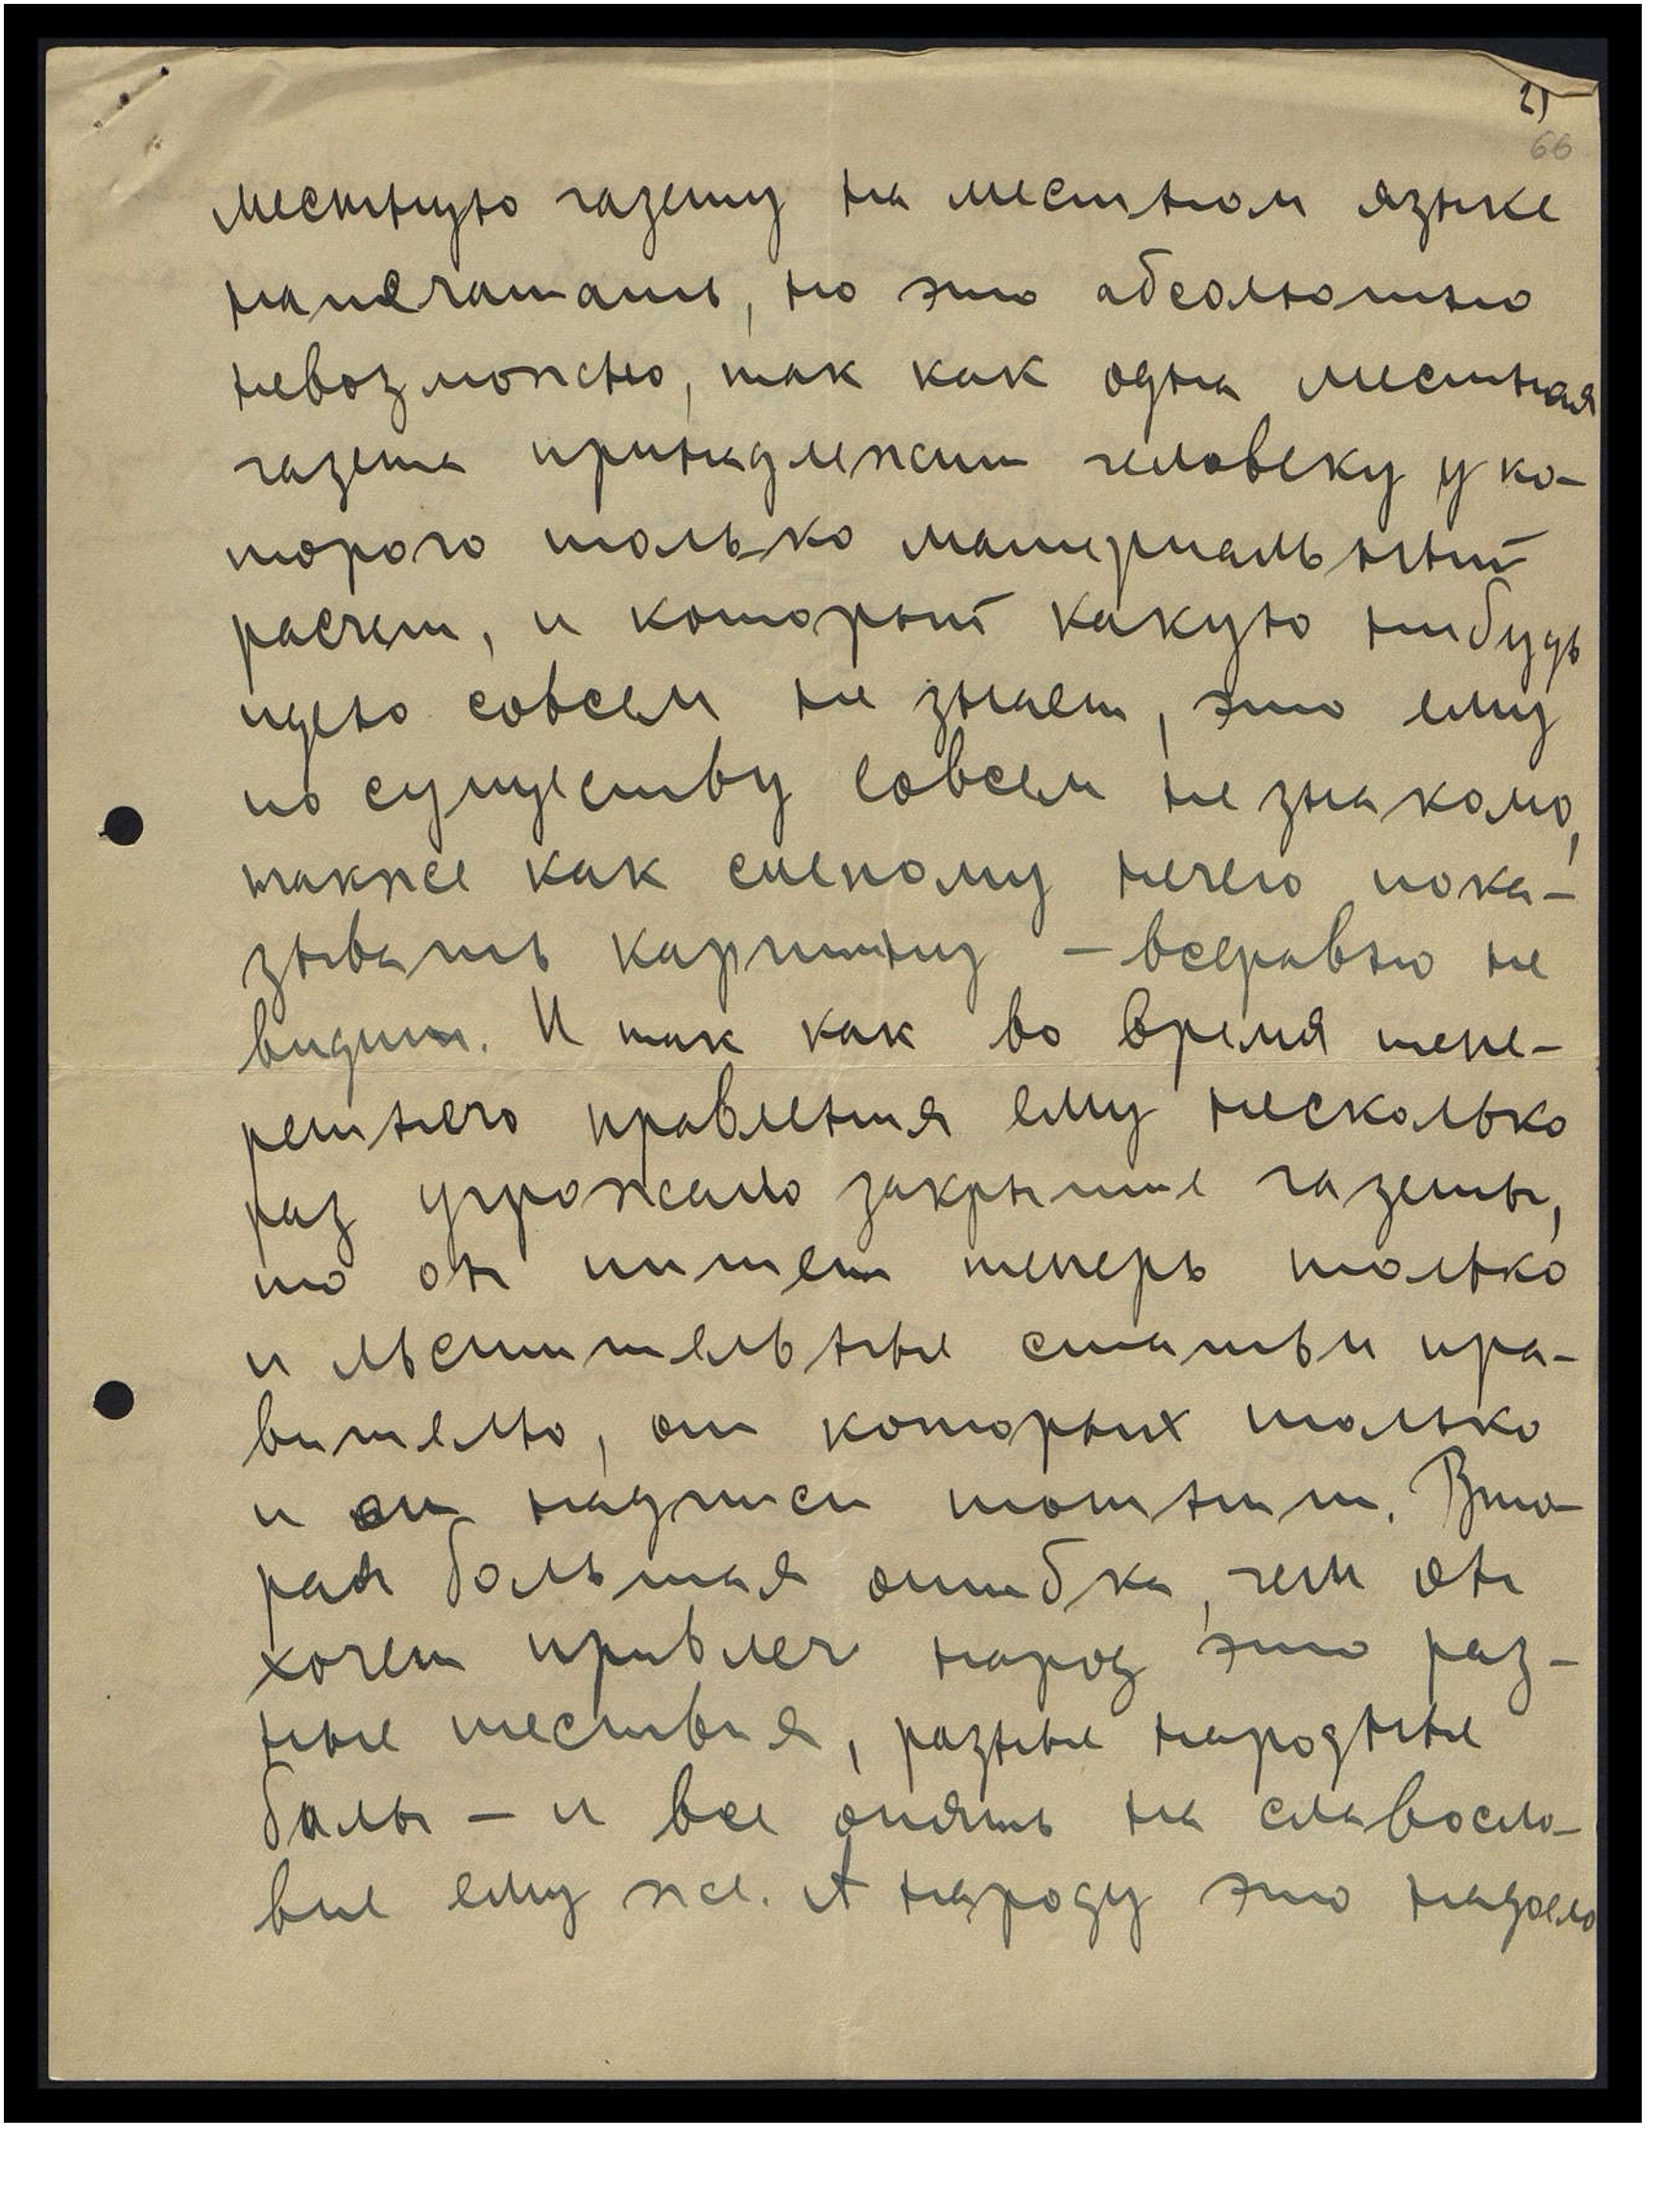 2)
66
местную газету на местном языке
напечатать, но это абсолютно
невозможно, так как одна местная
газета принадлежит человеку у ко-
торого только материальный
расчет, и который какую нибудь
идею совсем не знает, это ему
по существу совсем не знакомо,
также как слепому нечего пока-
зывать картину – всеравно не
видит. И так как во время тепе-
решнего правления ему несколько
раз угрожало закрытие газеты,
то он пишет теперь только
и льстительные статьи пра-
вителю, от которых только
и от надписи тошнит. Вто-
рая большая ошибка, чем он
хочет привлеч народ это раз-
ные шествия, разные народные
балы – и все опять на славосло-
вие ему же. А народу это надоело